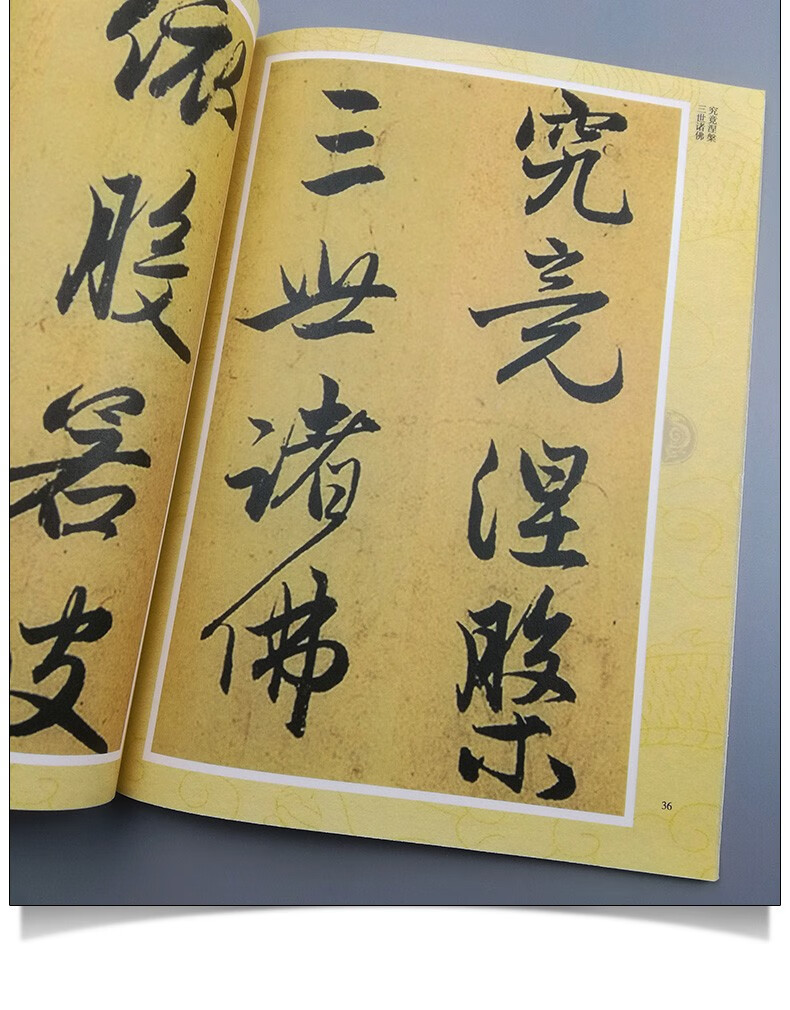 究竟涅槃
三世諸佛
究竟涅槃
三世诸佛
36
依
般
若
波